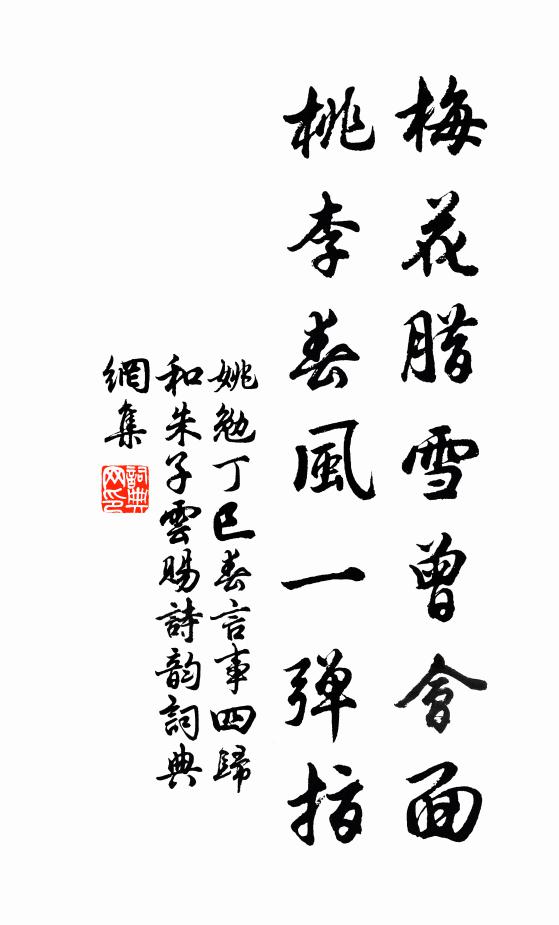 梅花腊雪曾會面
桃李春風一弹指
姚勉丁巳春言事四歸
和朱子雲賜詩韵詞典
網集
詞典網印